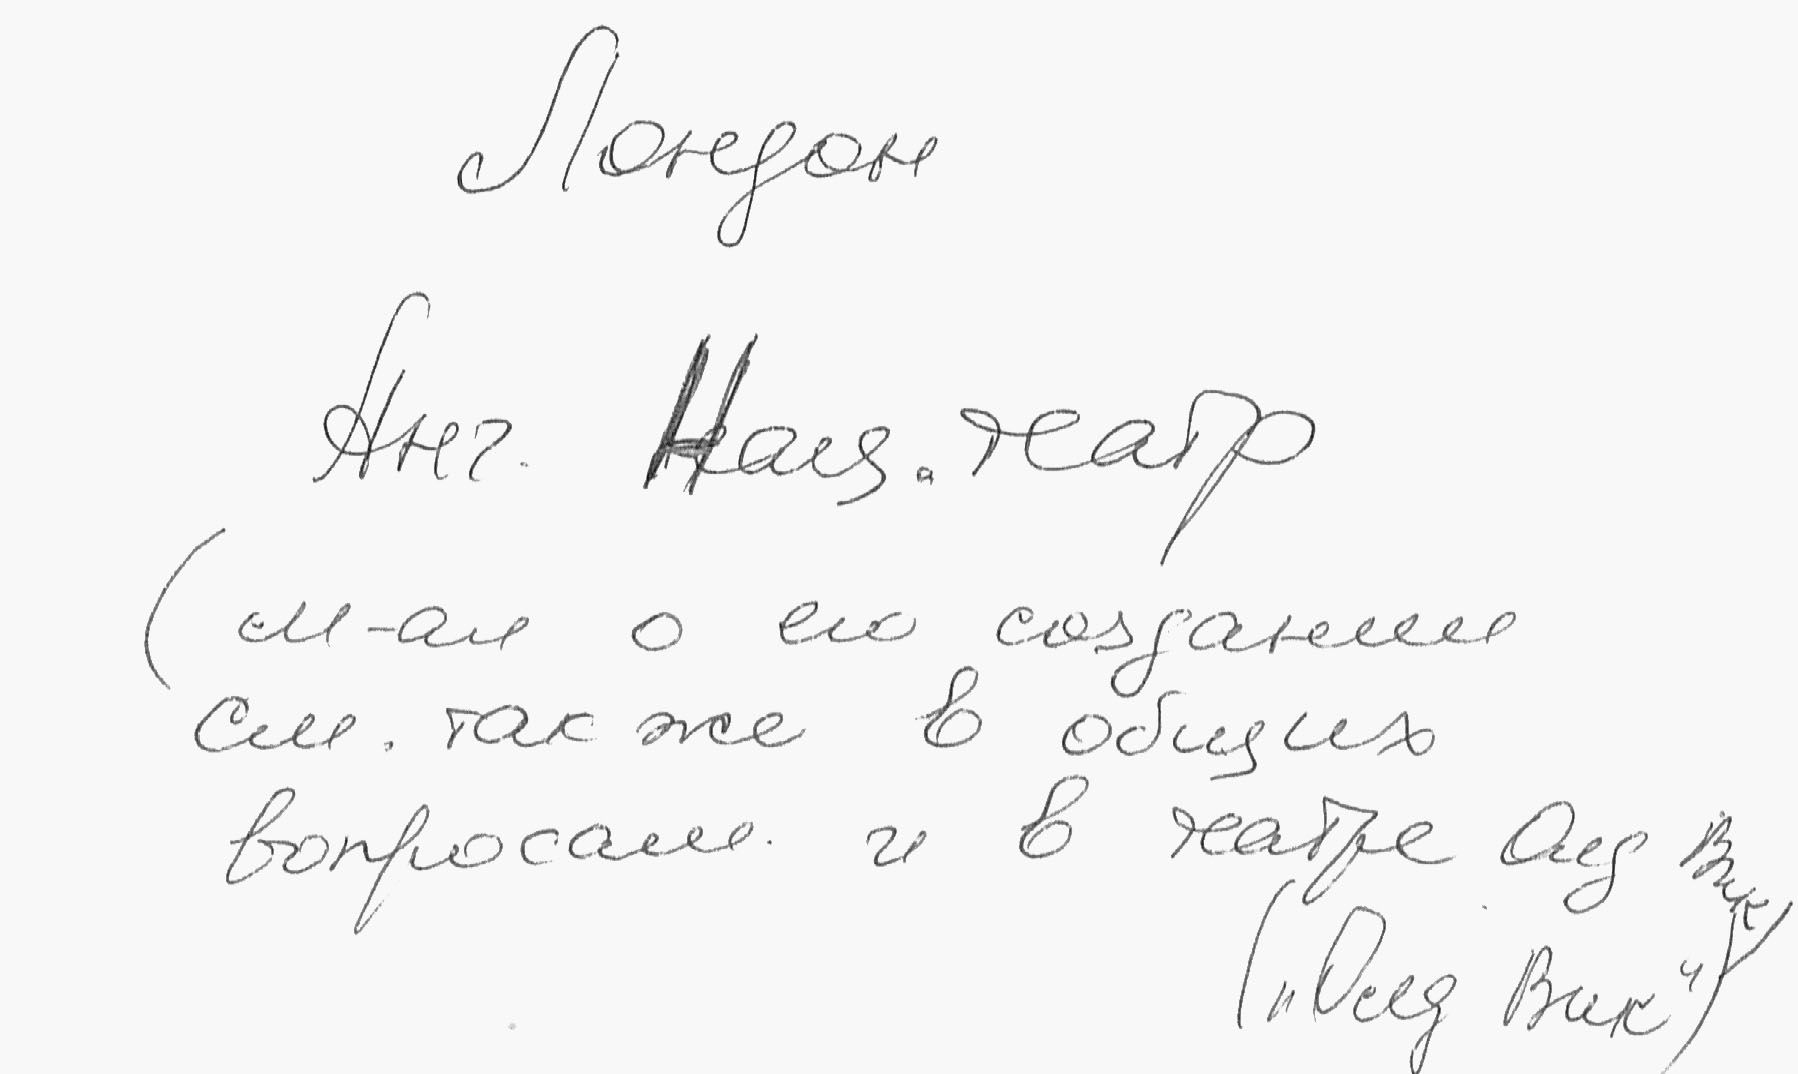 Лондон
Анг. Нац. театр
(м-ал о его создании
см. также в общих
вопросам и в театре Олд Вик)
("Олд Вик")